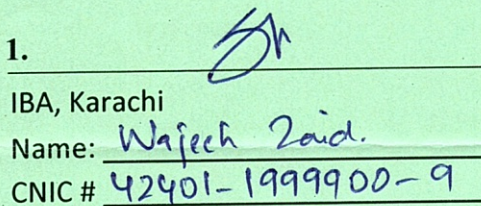 1.
IBA, Karachi
Name: Wajeeh Zaid.
CNIC # 42401-1999900-9